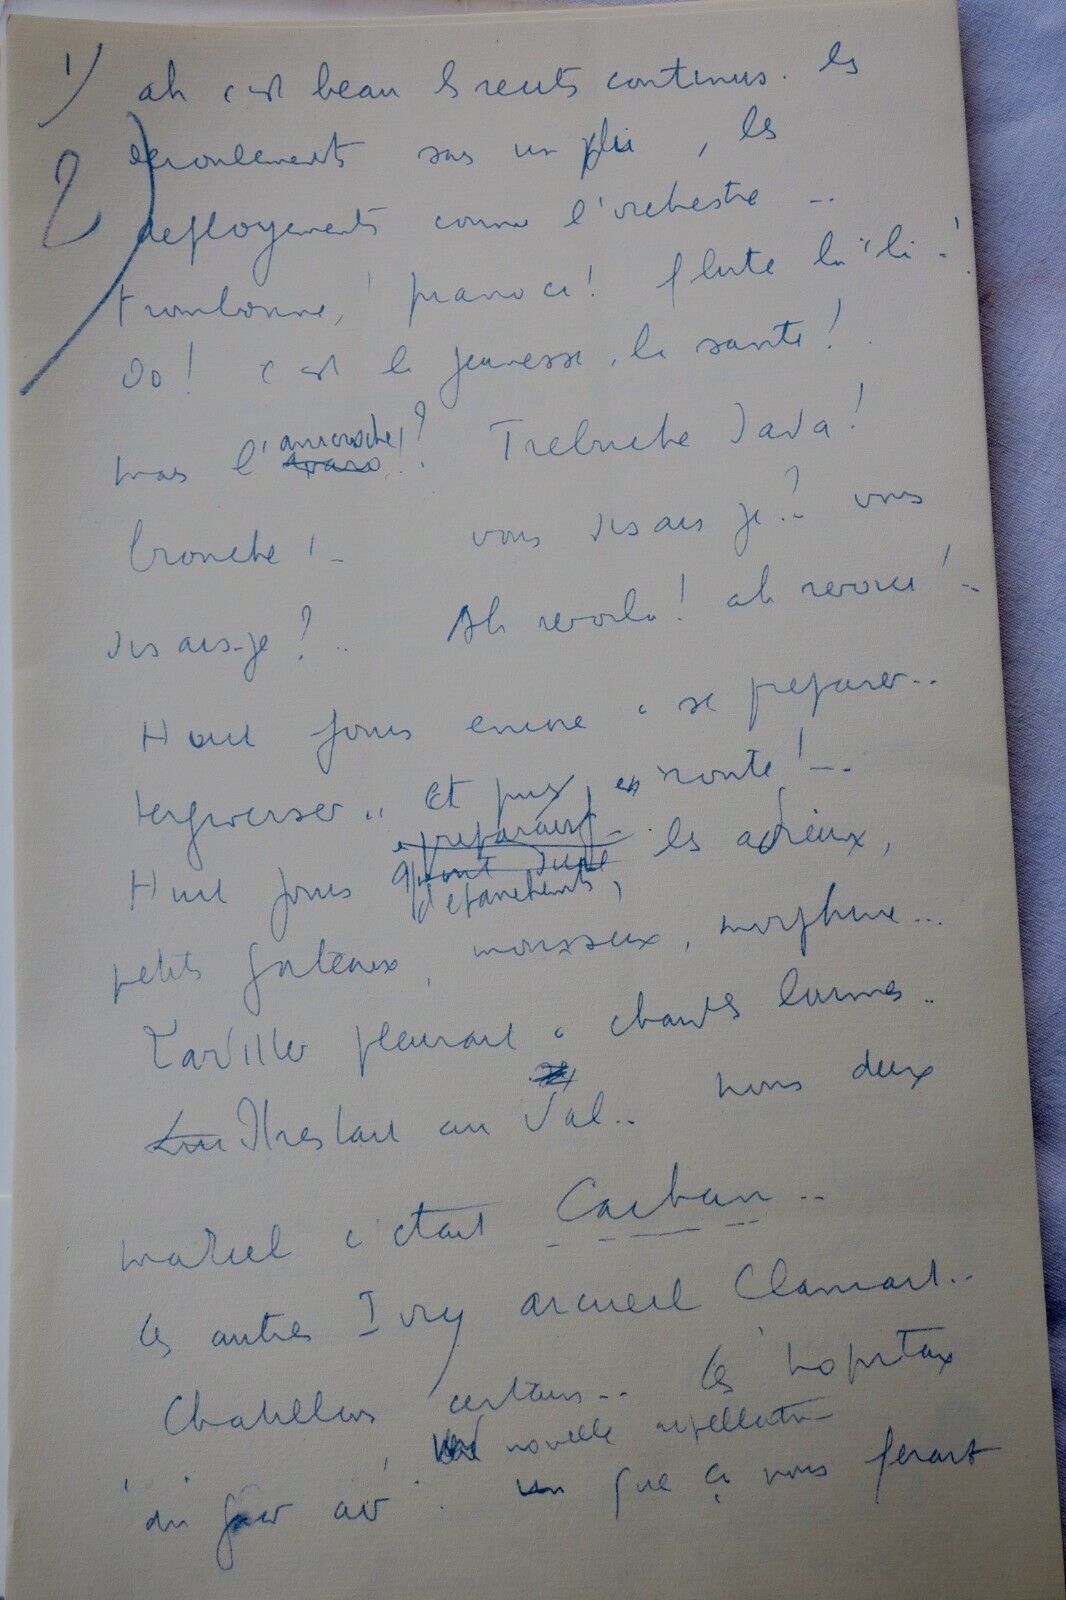 1) ah c'est beau les recits continus. les
2) deroulements sans un pli, les
deployements comme l'orchestre ..
trombonne! piano ci! flute la ïli -!
do! c'est la jeunesse, la sante!
mais l'anicroche!?
Trebuche Java!
bronche! - vous disais je?.. vous
disais-je?.. Ah revoila! ah revoici!..
Huit jours encore à se preparer..
tergiverser.. Et puis, en route!-..
Huit jours
d'epanchements, les adieux,
petits gateaux, mousseux, morphine...
pleurant à chaudes larmes..
Il restait au Val.. nous deux
c'etait
les autres Ivry arcueil Clamart..
Chatillon certains.. les hopitaux
nouvelle appellation
que ça nous ferait